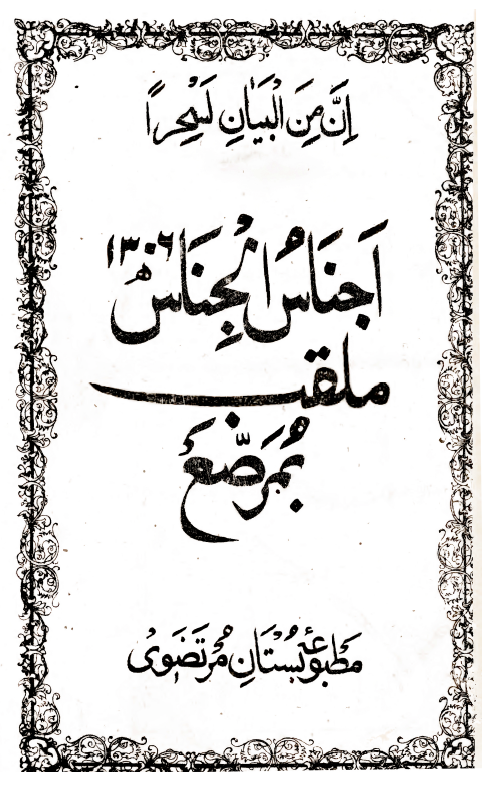 اِنَّ مِنَ الْبَيَانِ لَسِحْراً
اَجنَاسُ الْجِنَاس ١٣٠٦ھ
ملقب
بمُرَصَّعْ
مَطبوعۂ بُستَانِ مُرتَضَوى